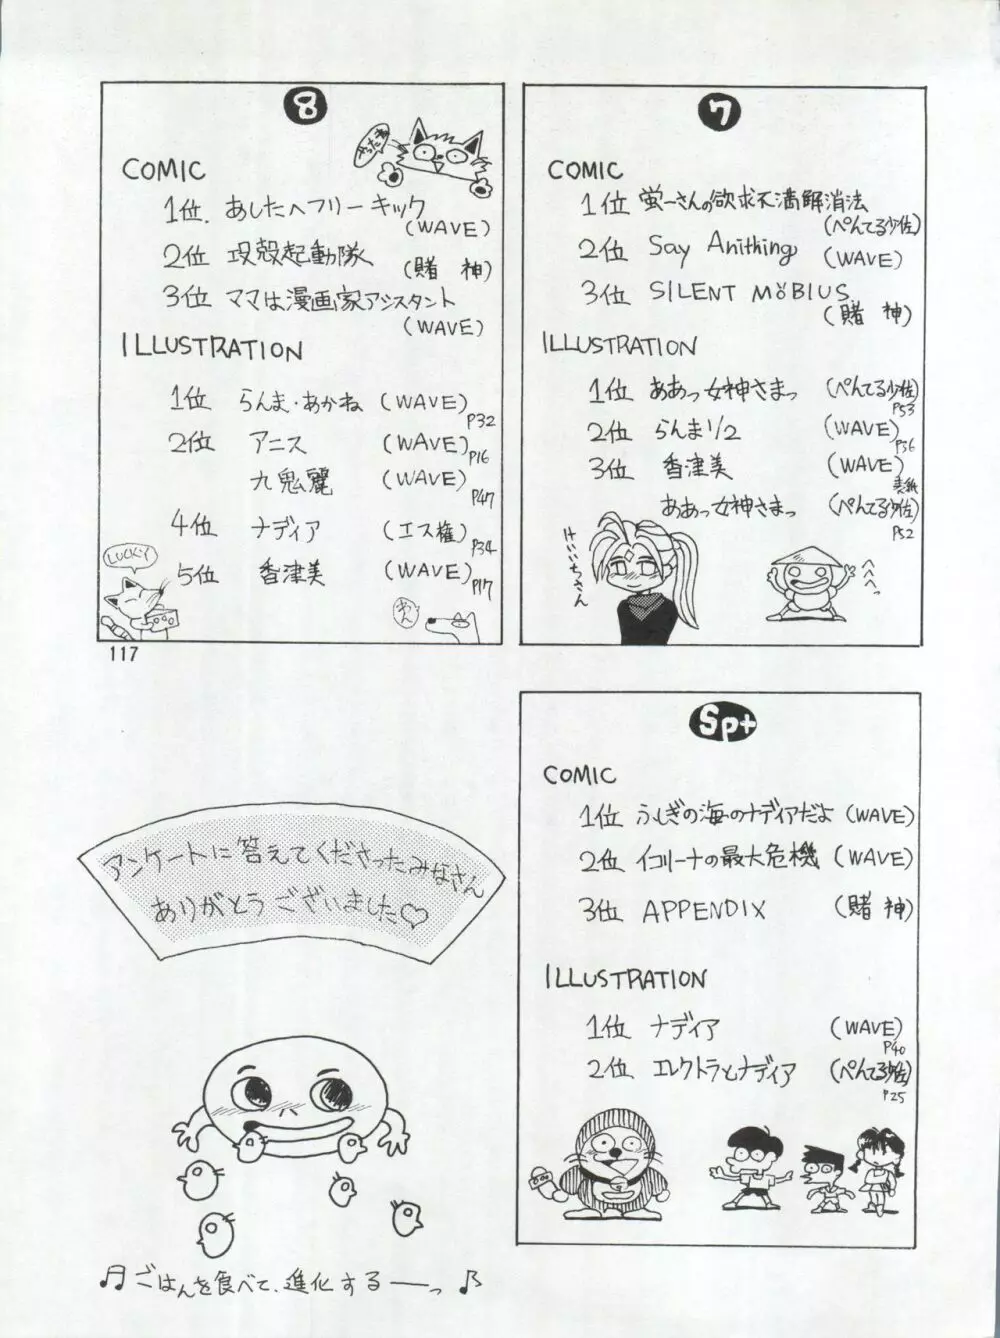 8
やったね
COMIC
1位. あしたへフリーキック (WAVE)
2位 攻殻起動隊 (賭 神)
3位 ママは漫画家アシスタント (WAVE)
ILLUSTRATION
1位 らんま・あかね (WAVE) P32
2位 アニス (WAVE) P16
九鬼麗 (WAVE) P47
4位 ナディア (エス権) P34
5位 香津美 (WAVE) P17
わん
117
7
COMIC
1位 蛍一さんの欲求不満解消法 (ぺんてる少佐)
2位 Say Anithing (WAVE)
3位 SILENT MöBIUS (賭 神)
ILLUSTRATION
1位 ああっ女神さまっ (ぺんてる少佐) P53
2位 らんま1/2 (WAVE) P56
3位 香津美 (WAVE) 表紙
ああっ女神さまっ (ぺんてる少佐) P52
けいいちさん
へへへっ
Sp+
COMIC
1位 ふしぎの海のナディアだよ (WAVE)
2位 イコリーナの最大危機 (WAVE)
3位 APPENDIX (賭 神)
ILLUSTRATION
1位 ナディア (WAVE) P40
2位 エレクトラとナディア (ぺんてる少佐) P25
アンケートに答えてくださったみなさん
ありがとうございました♡
♫ ごはんを食べて、進化するーーっ ♪